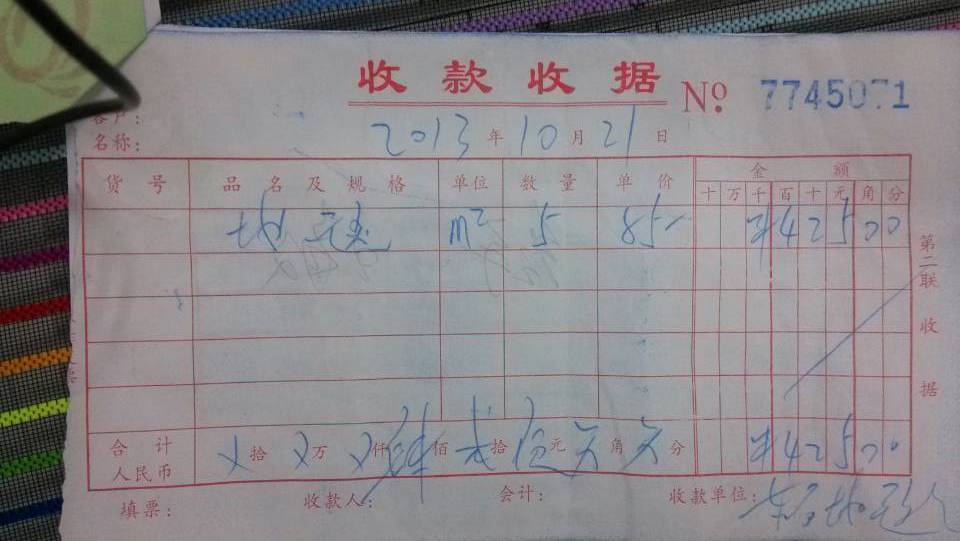 收款收据 No. 7745071
客户:
名称: 2013年10月21日
货号 品名及规格 单位 数量 单价 金额
十 万 千 百 十 元 角 分
地 m² 5 85- ¥42500
第二联 收据
合计 人民币 ㄨ拾ㄨ万ㄨ仟肆佰贰拾伍元 角 分 ¥42500
填票: 收款人: 会计: 收款单位: